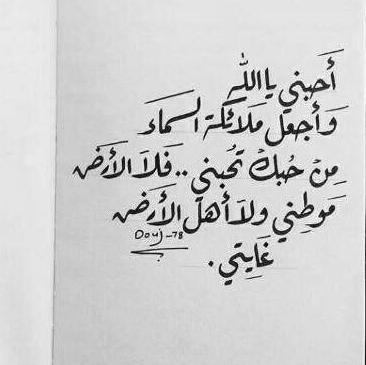 أَحبني يا الله
وَأجعل ملائكة السماء
مِنْ حُبكْ تُحبني .. فلا الأرض
مَوطِني ولا أهل الأرض
Douj-78
غَايتي .